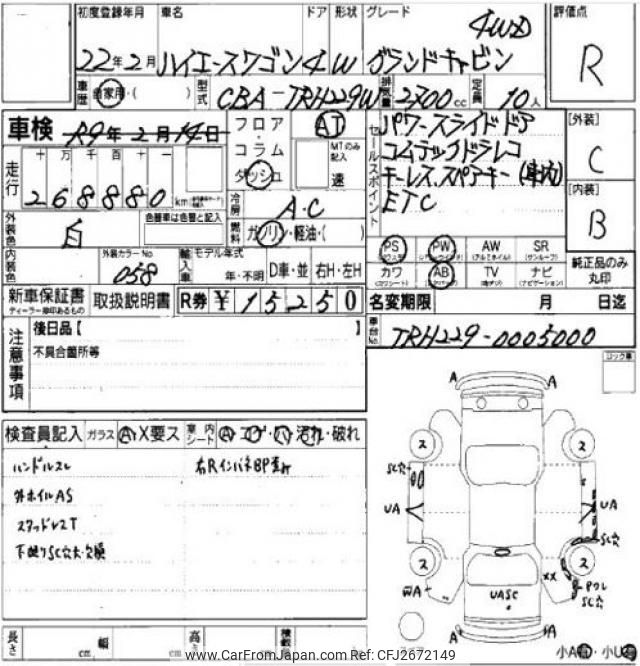 初度登録年月 車名 ドア 形状 グレード 評価点
22年2月 ハイエースワゴン 4 W グランドキャビン 4WD R
車歴 自家用・( ) 型式 CBA-TRH229W 排気量 2700cc 定員 10人
車検 R9年2月14日 フロア・コラム・ダッシュ AT MTのみ記入 速
セールスポイント
パワースライドドア
コムテックドラレコ
キーレス、スペアキー(車内)
ETC
[外装] C
[内装] B
走行 十 万 千 百 十 一
268880 km
冷房 A・C
外装色 白 色替車は色替と記入
燃料 ガソリン・軽油・( )
内装色 外装カラーNo. 058 輸入車 モデル年式 年・不明 D車・並 右H・左H
PS PW AW SR
カワ AB TV ナビ
純正品のみ丸印
新車保証書 取扱説明書 R券 ¥15250
名変期限 月 日迄
注意事項 後日品【
不具合箇所等
車台No. TRH229-0005000
コック車
検査員記入 ガラス A・X要ス 室内シート A・コゲ・ハ・汚れ・破れ
ハンドルスレ
外ホイルAS
スタッドレスT
右RインパネBP
A A
2 2
SC穴
UA UA
SC穴
2 2
XX
A
UASC
SC穴
A A
長さ cm 幅 cm 高さ
小A 小U
www.CarFromJapan.com Ref: CFJ2672149